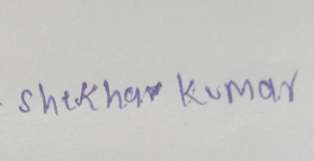 Shekhar Kumar